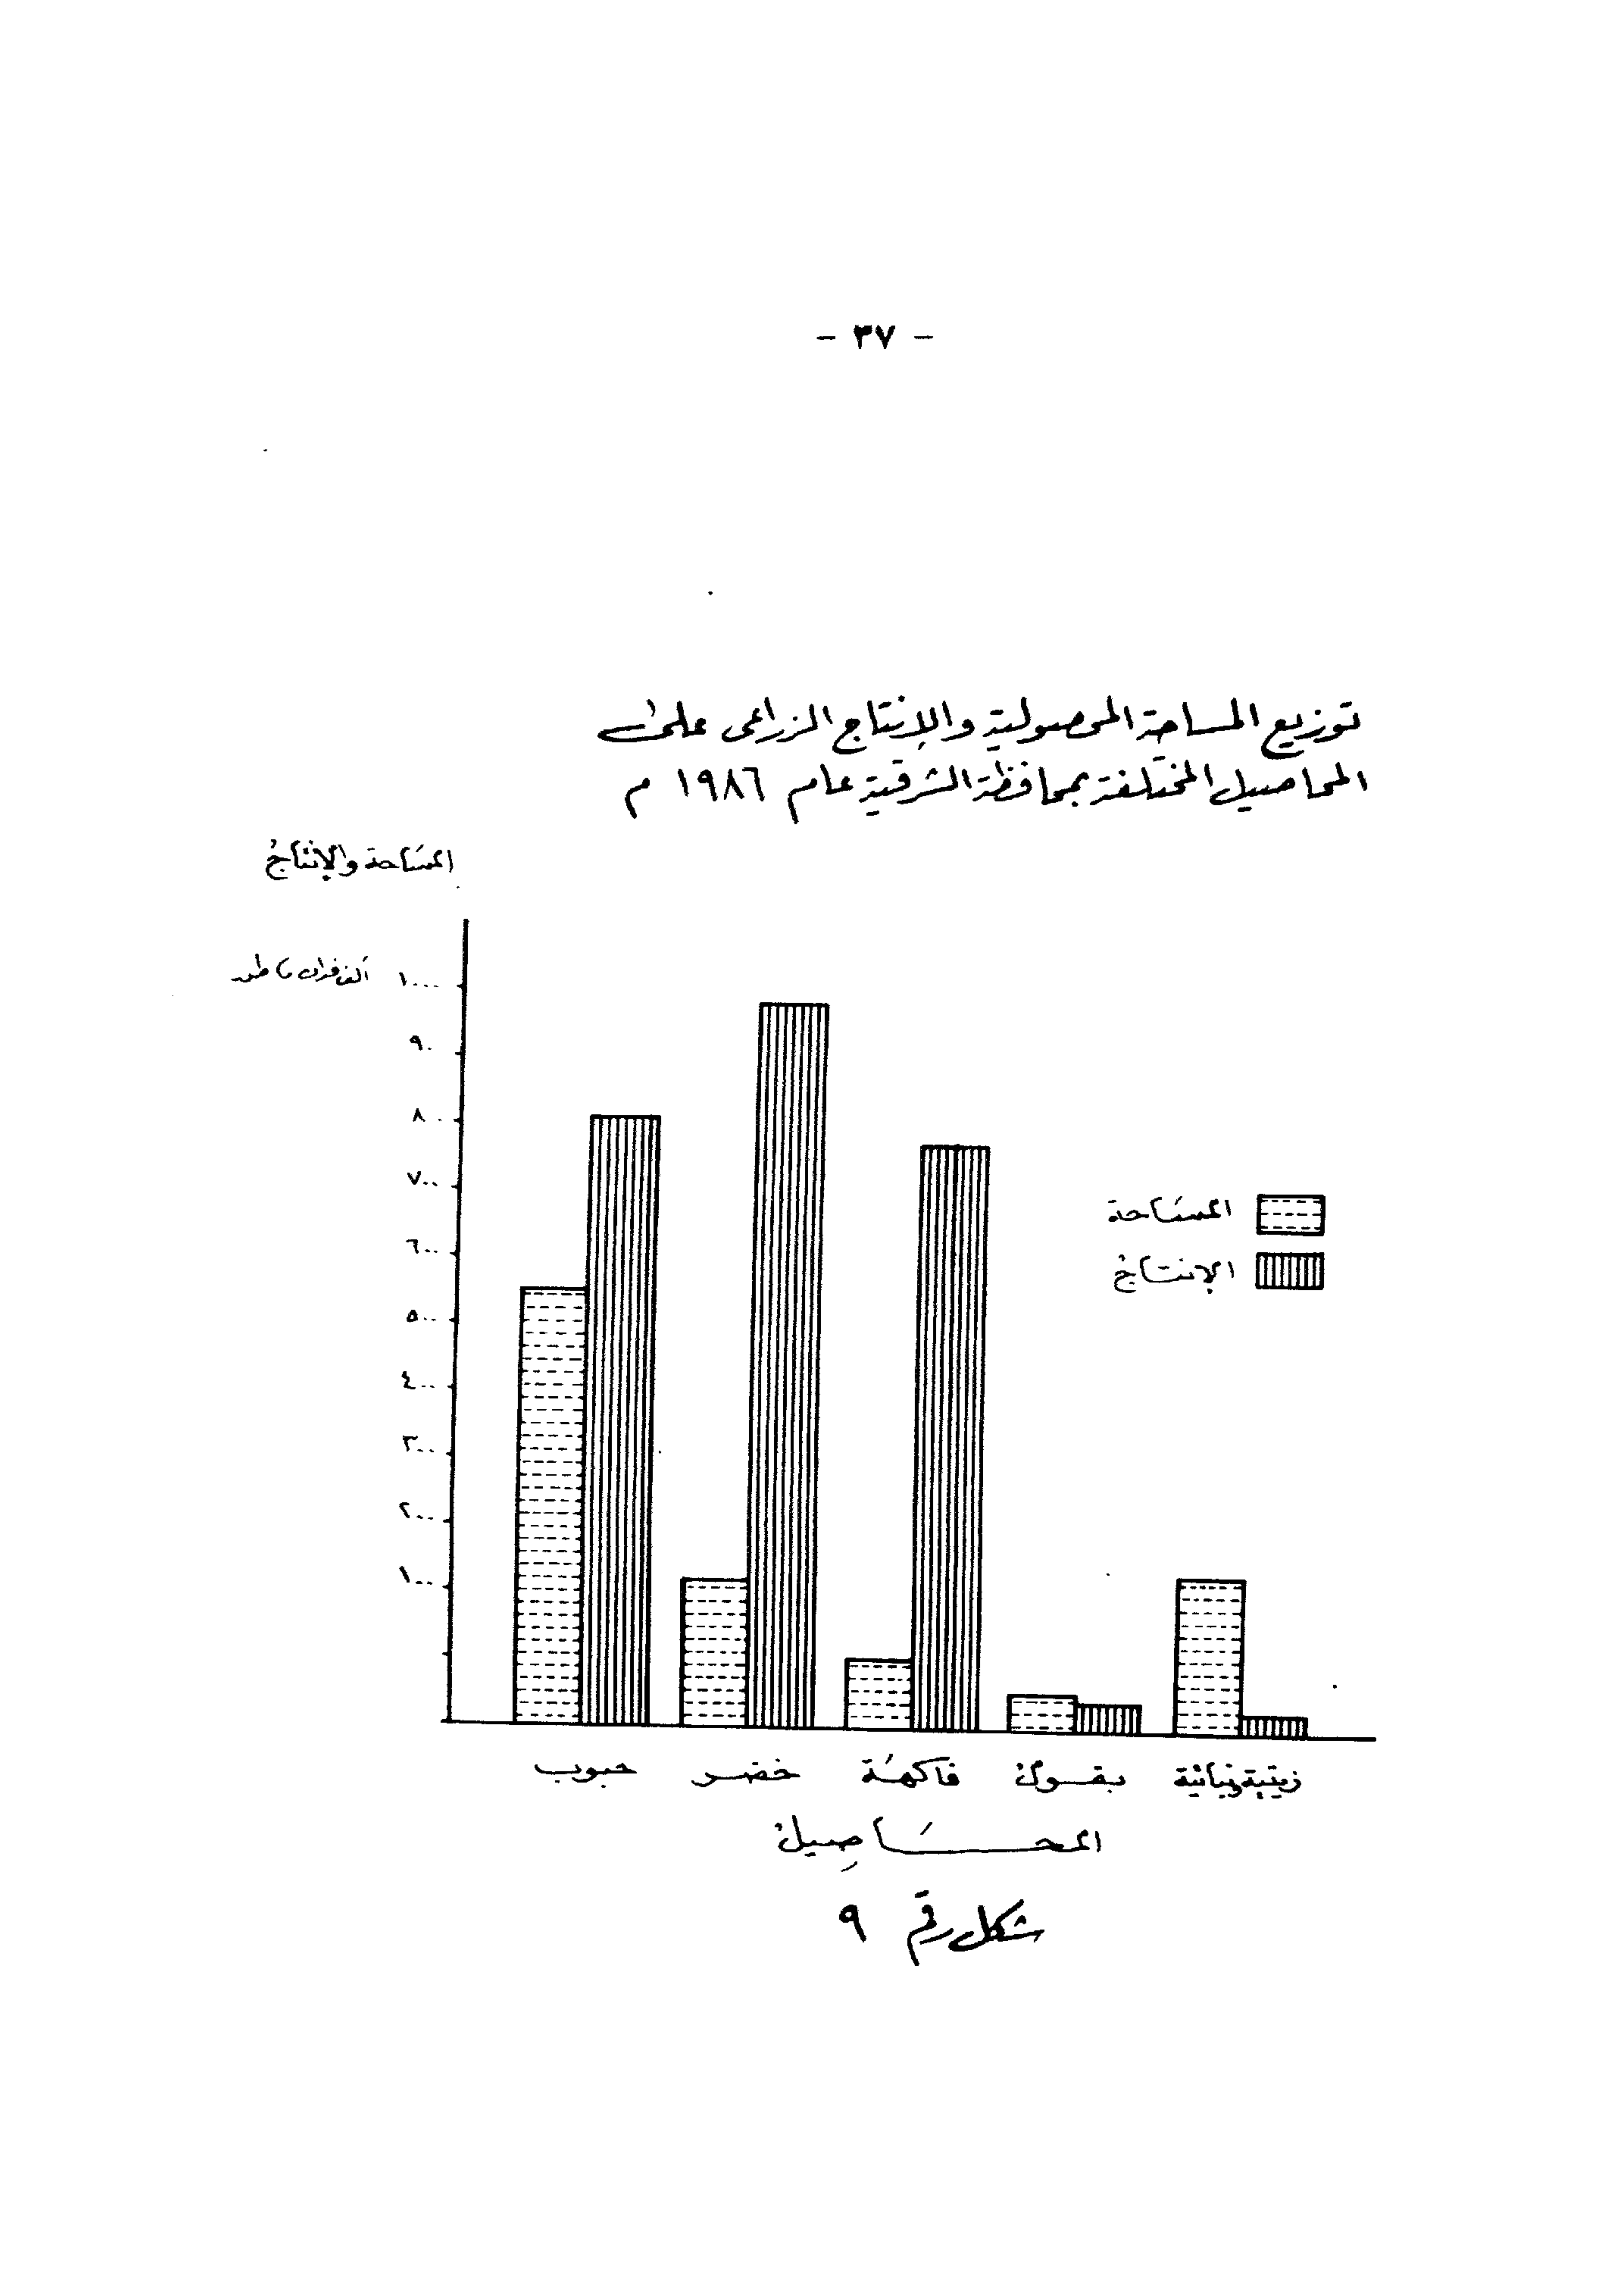 - ٣٧ -
توزيع المساحة المحصولية والإنتاج الزراعى على
المحاصيل المختلفة بمحافظة الشرقية عام ١٩٨٦ م
المساحة والإنتاج
١٠٠٠ ألف فدان
٩٠
٨٠٠
٧٠٠
٦٠٠
٥٠٠
٤٠٠
٣٠٠
٢٠٠
١٠٠
المساحة
الإنتاج
حبوب خضر فاكهة بقول زيتية ونباتية
المحاصيل
شكل رقم ٩